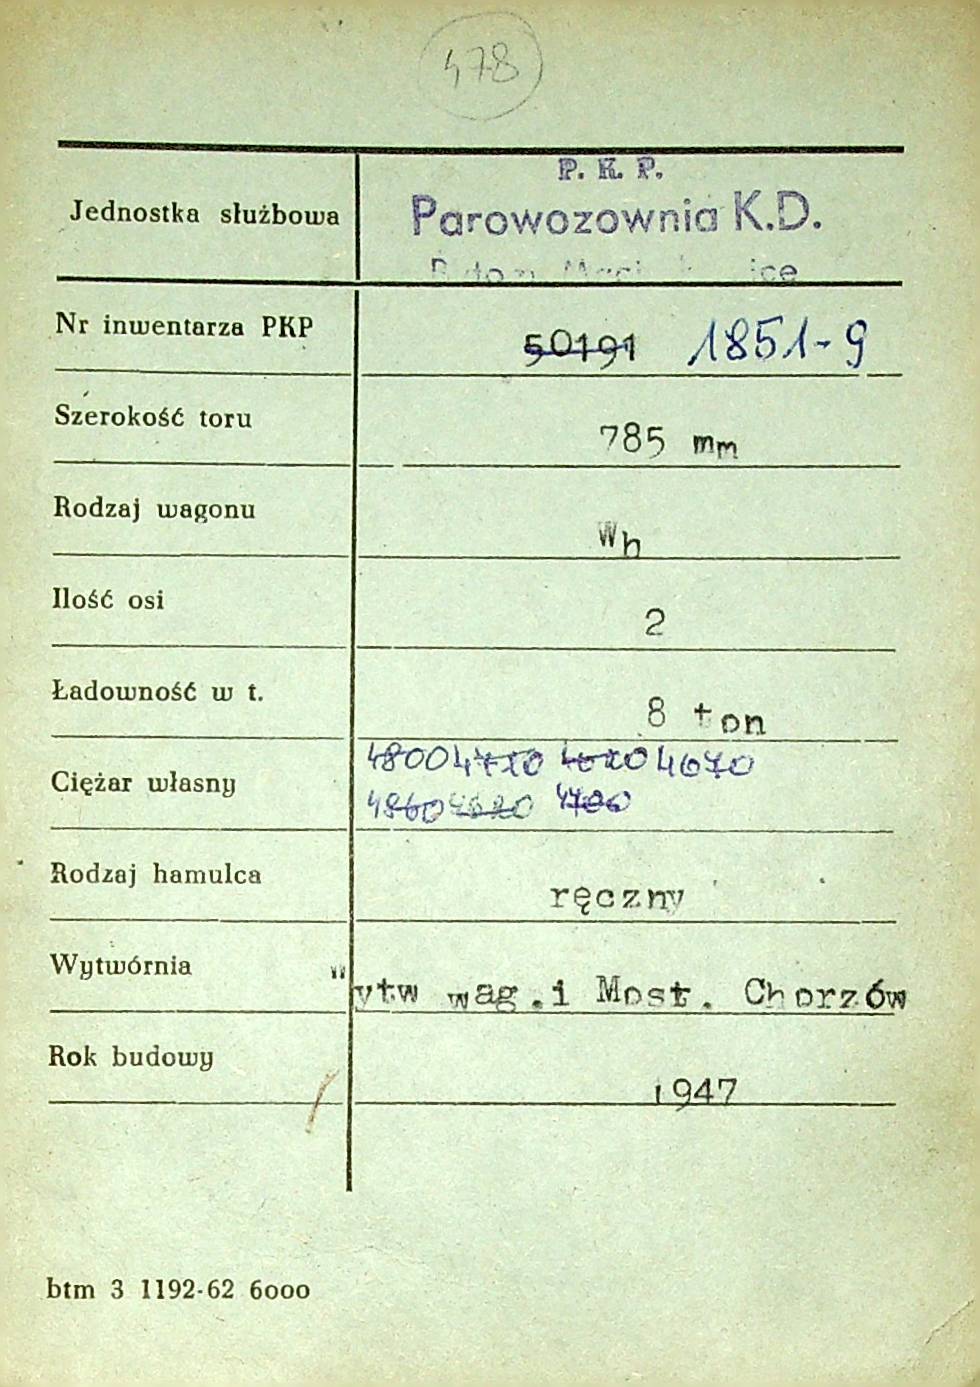 478
P. K. P.
Jednostka służbowa Parowozownia K.D.
Nr inwentarza PKP 50191 1851-9
Szerokość toru 785 mm
Rodzaj wagonu Wh
Ilość osi 2
Ładowność w t. 8 ton
Ciężar własny 4800 4710 4670
4860 4620 4700
Rodzaj hamulca ręczny
Wytwórnia Wytw wag.i Most. Chorzów
Rok budowy 1947
btm 3 1192-62 6000